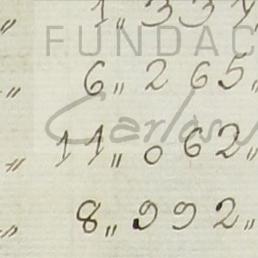 1„334
FUNDAC
„ 6„265„
Carlos
„ 11„062„
„ 8„992„